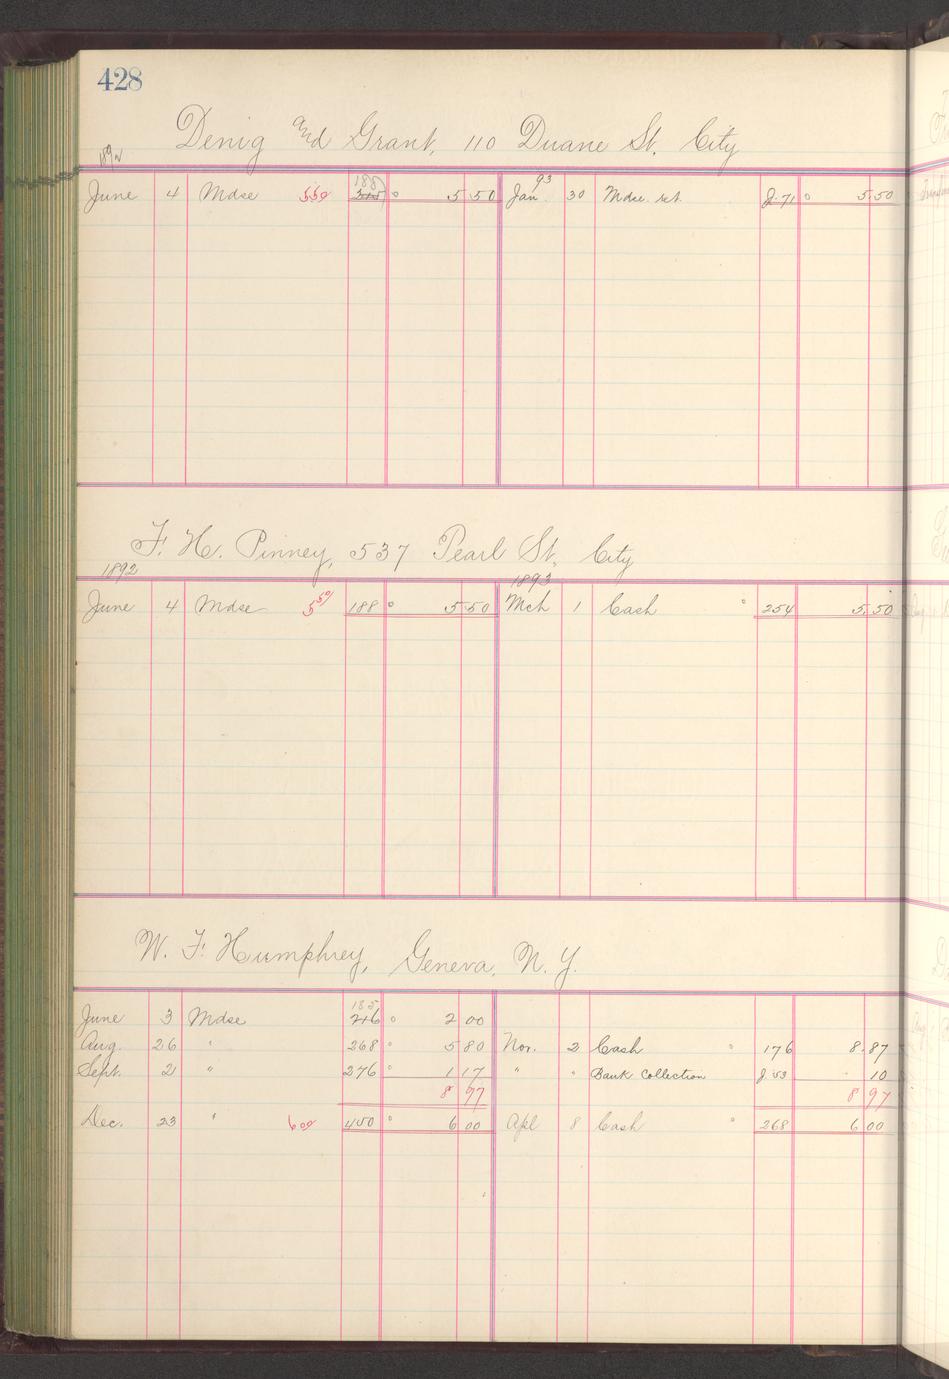 428
Denig and Grant, 110 Duane St. City
1892
June 4 Mdse 550 188 5 50 Jan 93 30 Mdse. ret. J. 71 5.50
F. H. Pinney, 537 Pearl St. City
1892 1893
June 4 Mdse 5 50 188 5 50 Mch 1 Cash " 254 5.50
W. F. Humphrey, Geneva, N.Y.
185
June 3 Mdse 216 2 00
Aug. 26 " 268 5 80 Nov. 2 Cash " 176 8.87
Sept. 2 " 276 1 17 " " Bank Collection J 53 10
8 97 8 97
Dec. 23 " 600 450 6 00 Apl 8 Cash " 268 6 00